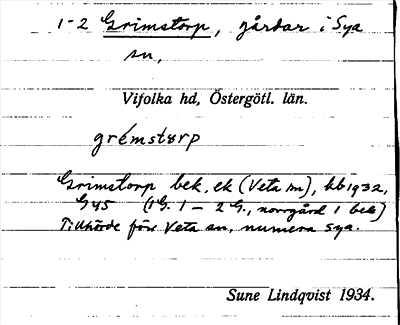 1-2 Grimstorp, gårdar i Sya
sn,
Vifolka hd, Östergötl. län.
grémstørp
Grimstorp bek, ek (Veta sn), kb 1932,
G45 (1 G. 1 – 2 G., norrgård 1 bek)
Tillhörde förr Veta sn, numera Sya.
Sune Lindqvist 1934.